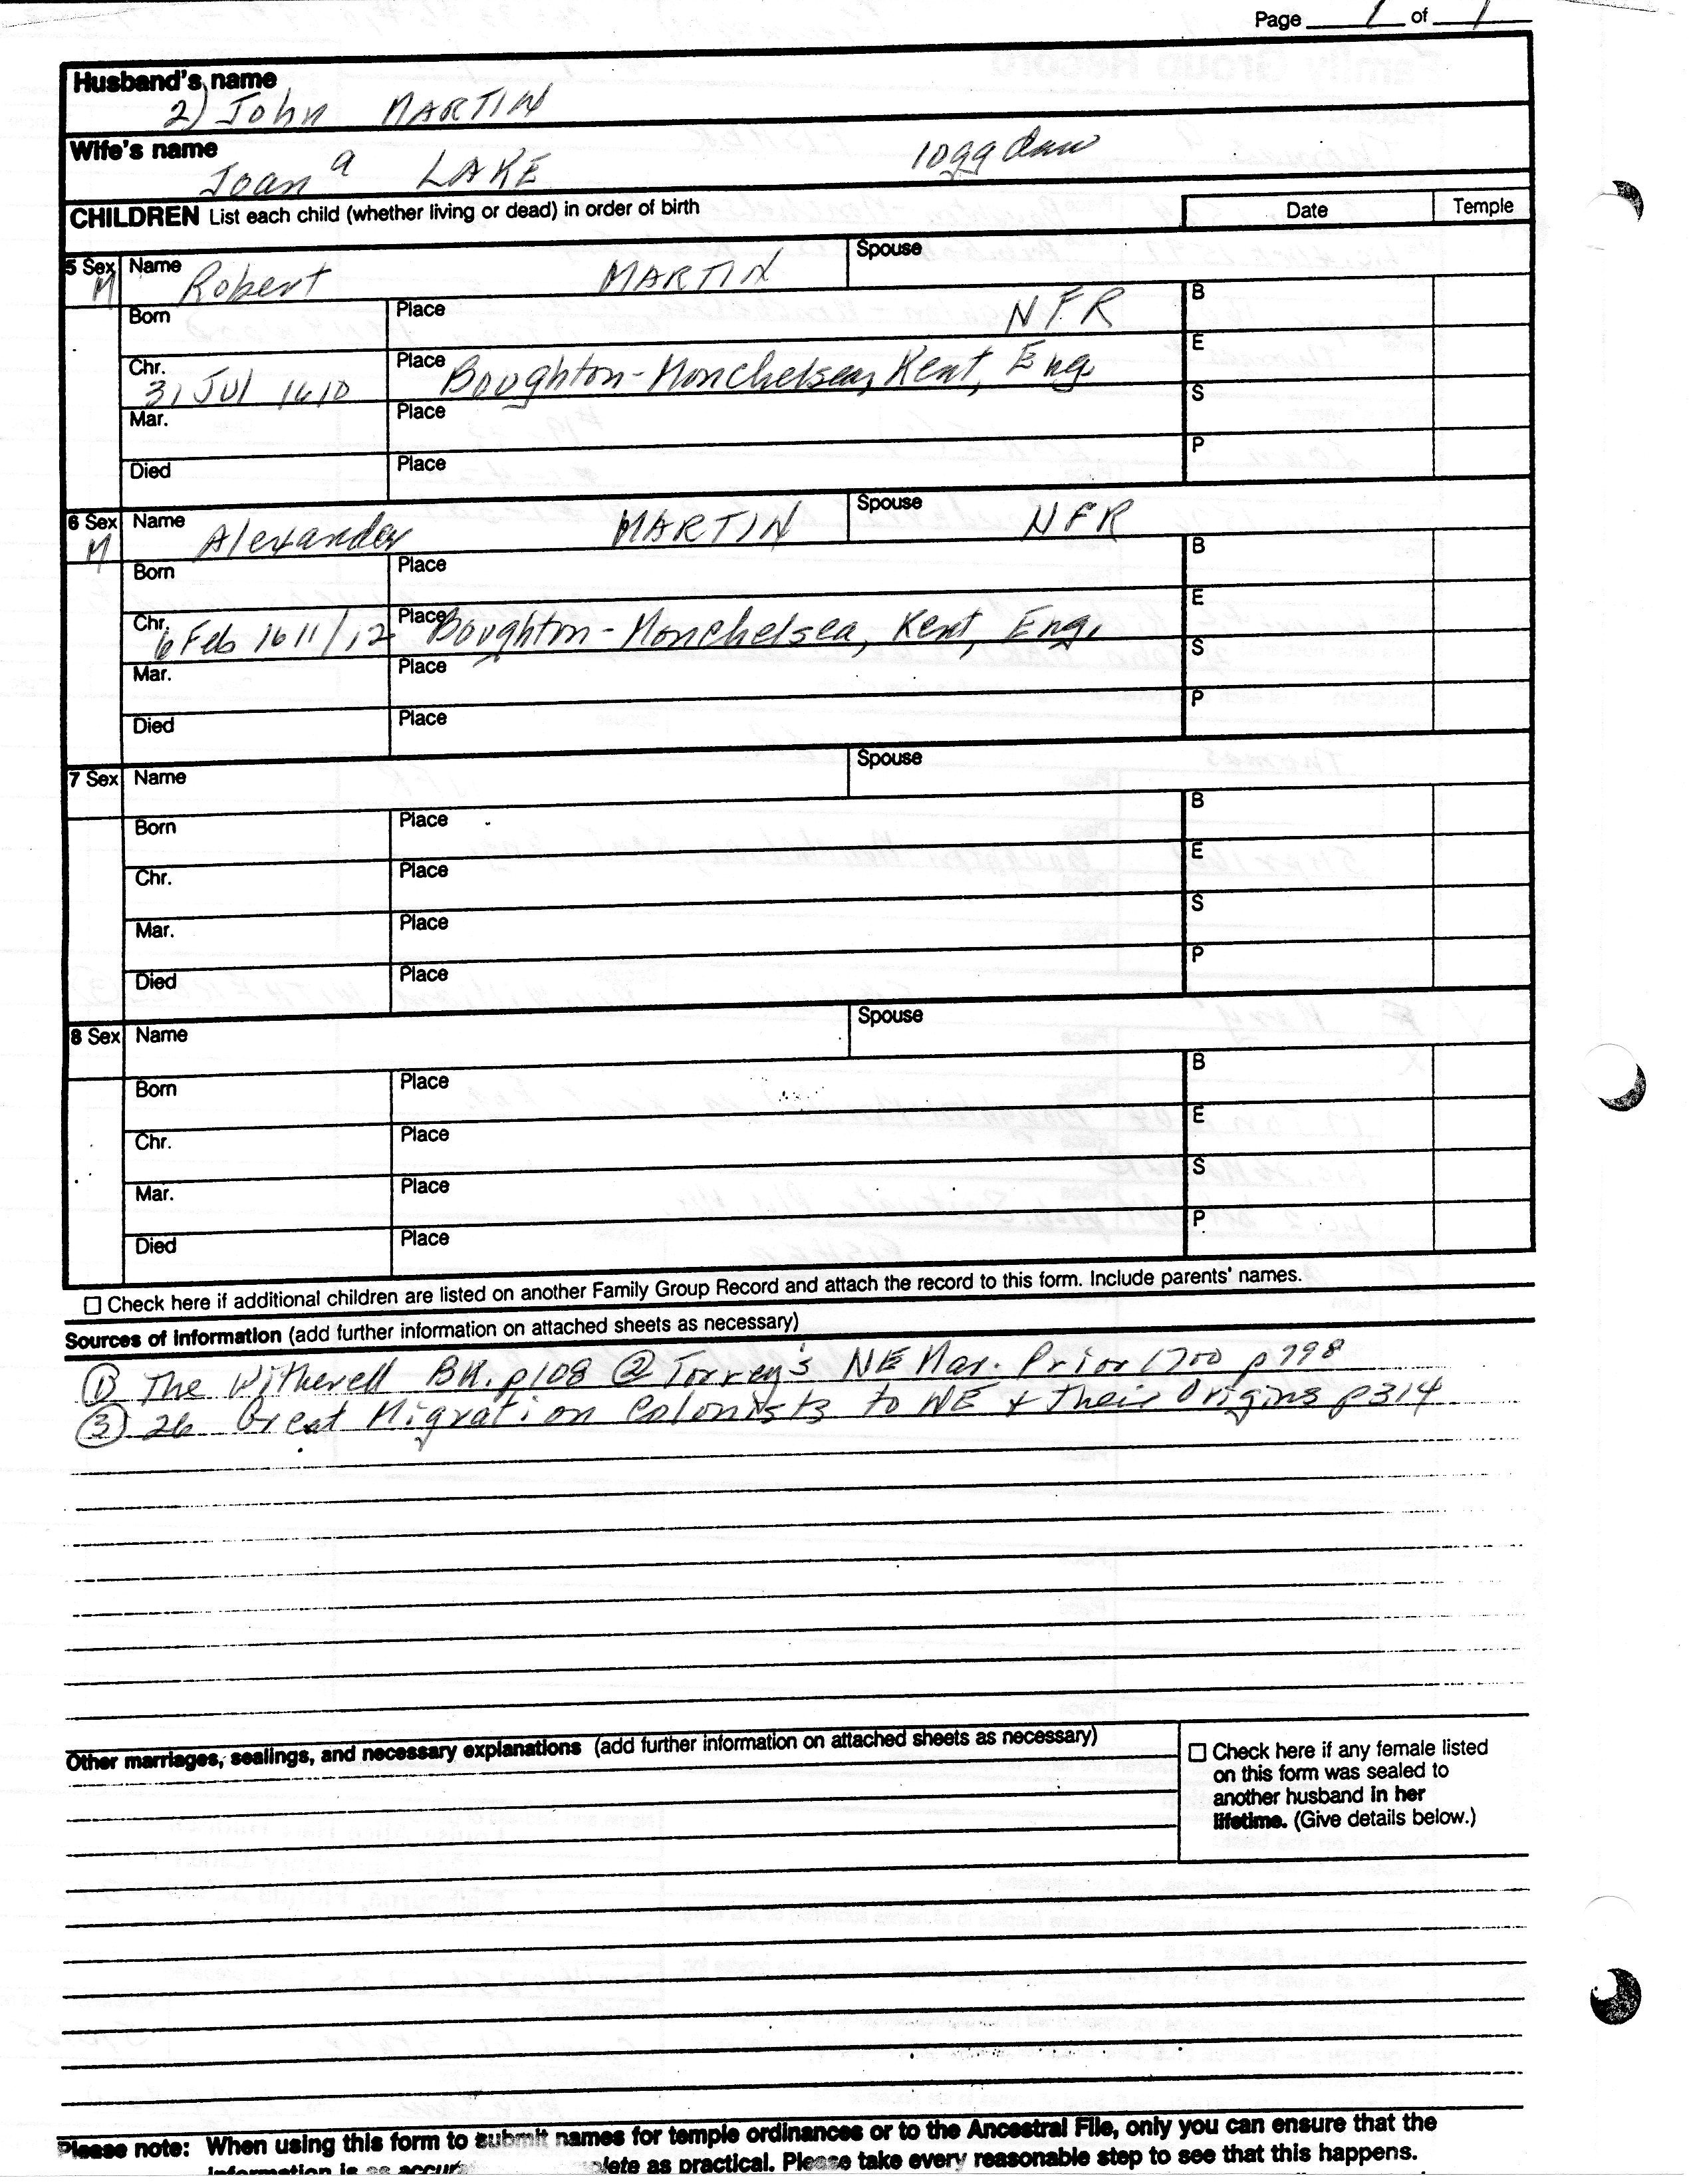 Page 1 of 1
Husband's name
2) John MARTIN
Wife's name
Joan a LAKE 10gg dau
CHILDREN List each child (whether living or dead) in order of birth Date Temple
5 Sex Name Spouse
M Robert MARTIN
Born Place NFR B
Chr. Place E
31 Jul 1610 Boughton-Monchelsea, Kent, Eng.
Mar. Place S
Died Place P
6 Sex Name Spouse
M Alexander MARTIN NFR
Born Place B
Chr. Place E
6 Feb 1611/12 Boughton-Monchelsea, Kent, Eng.
Mar. Place S
Died Place P
7 Sex Name Spouse
Born Place B
Chr. Place E
Mar. Place S
Died Place P
8 Sex Name Spouse
Born Place B
Chr. Place E
Mar. Place S
Died Place P
Check here if additional children are listed on another Family Group Record and attach the record to this form. Include parents' names.
Sources of information (add further information on attached sheets as necessary)
① The Witherell BK. p108 ② Torrey's NE Mar. Prior 1700 p798
③ 26 Great Migration Colonists to NE + Their Origins p314
Other marriages, sealings, and necessary explanations (add further information on attached sheets as necessary)
Check here if any female listed
on this form was sealed to
another husband in her
lifetime. (Give details below.)
Please note: When using this form to submit names for temple ordinances or to the Ancestral File, only you can ensure that the
information is as practical. Please take every reasonable step to see that this happens.